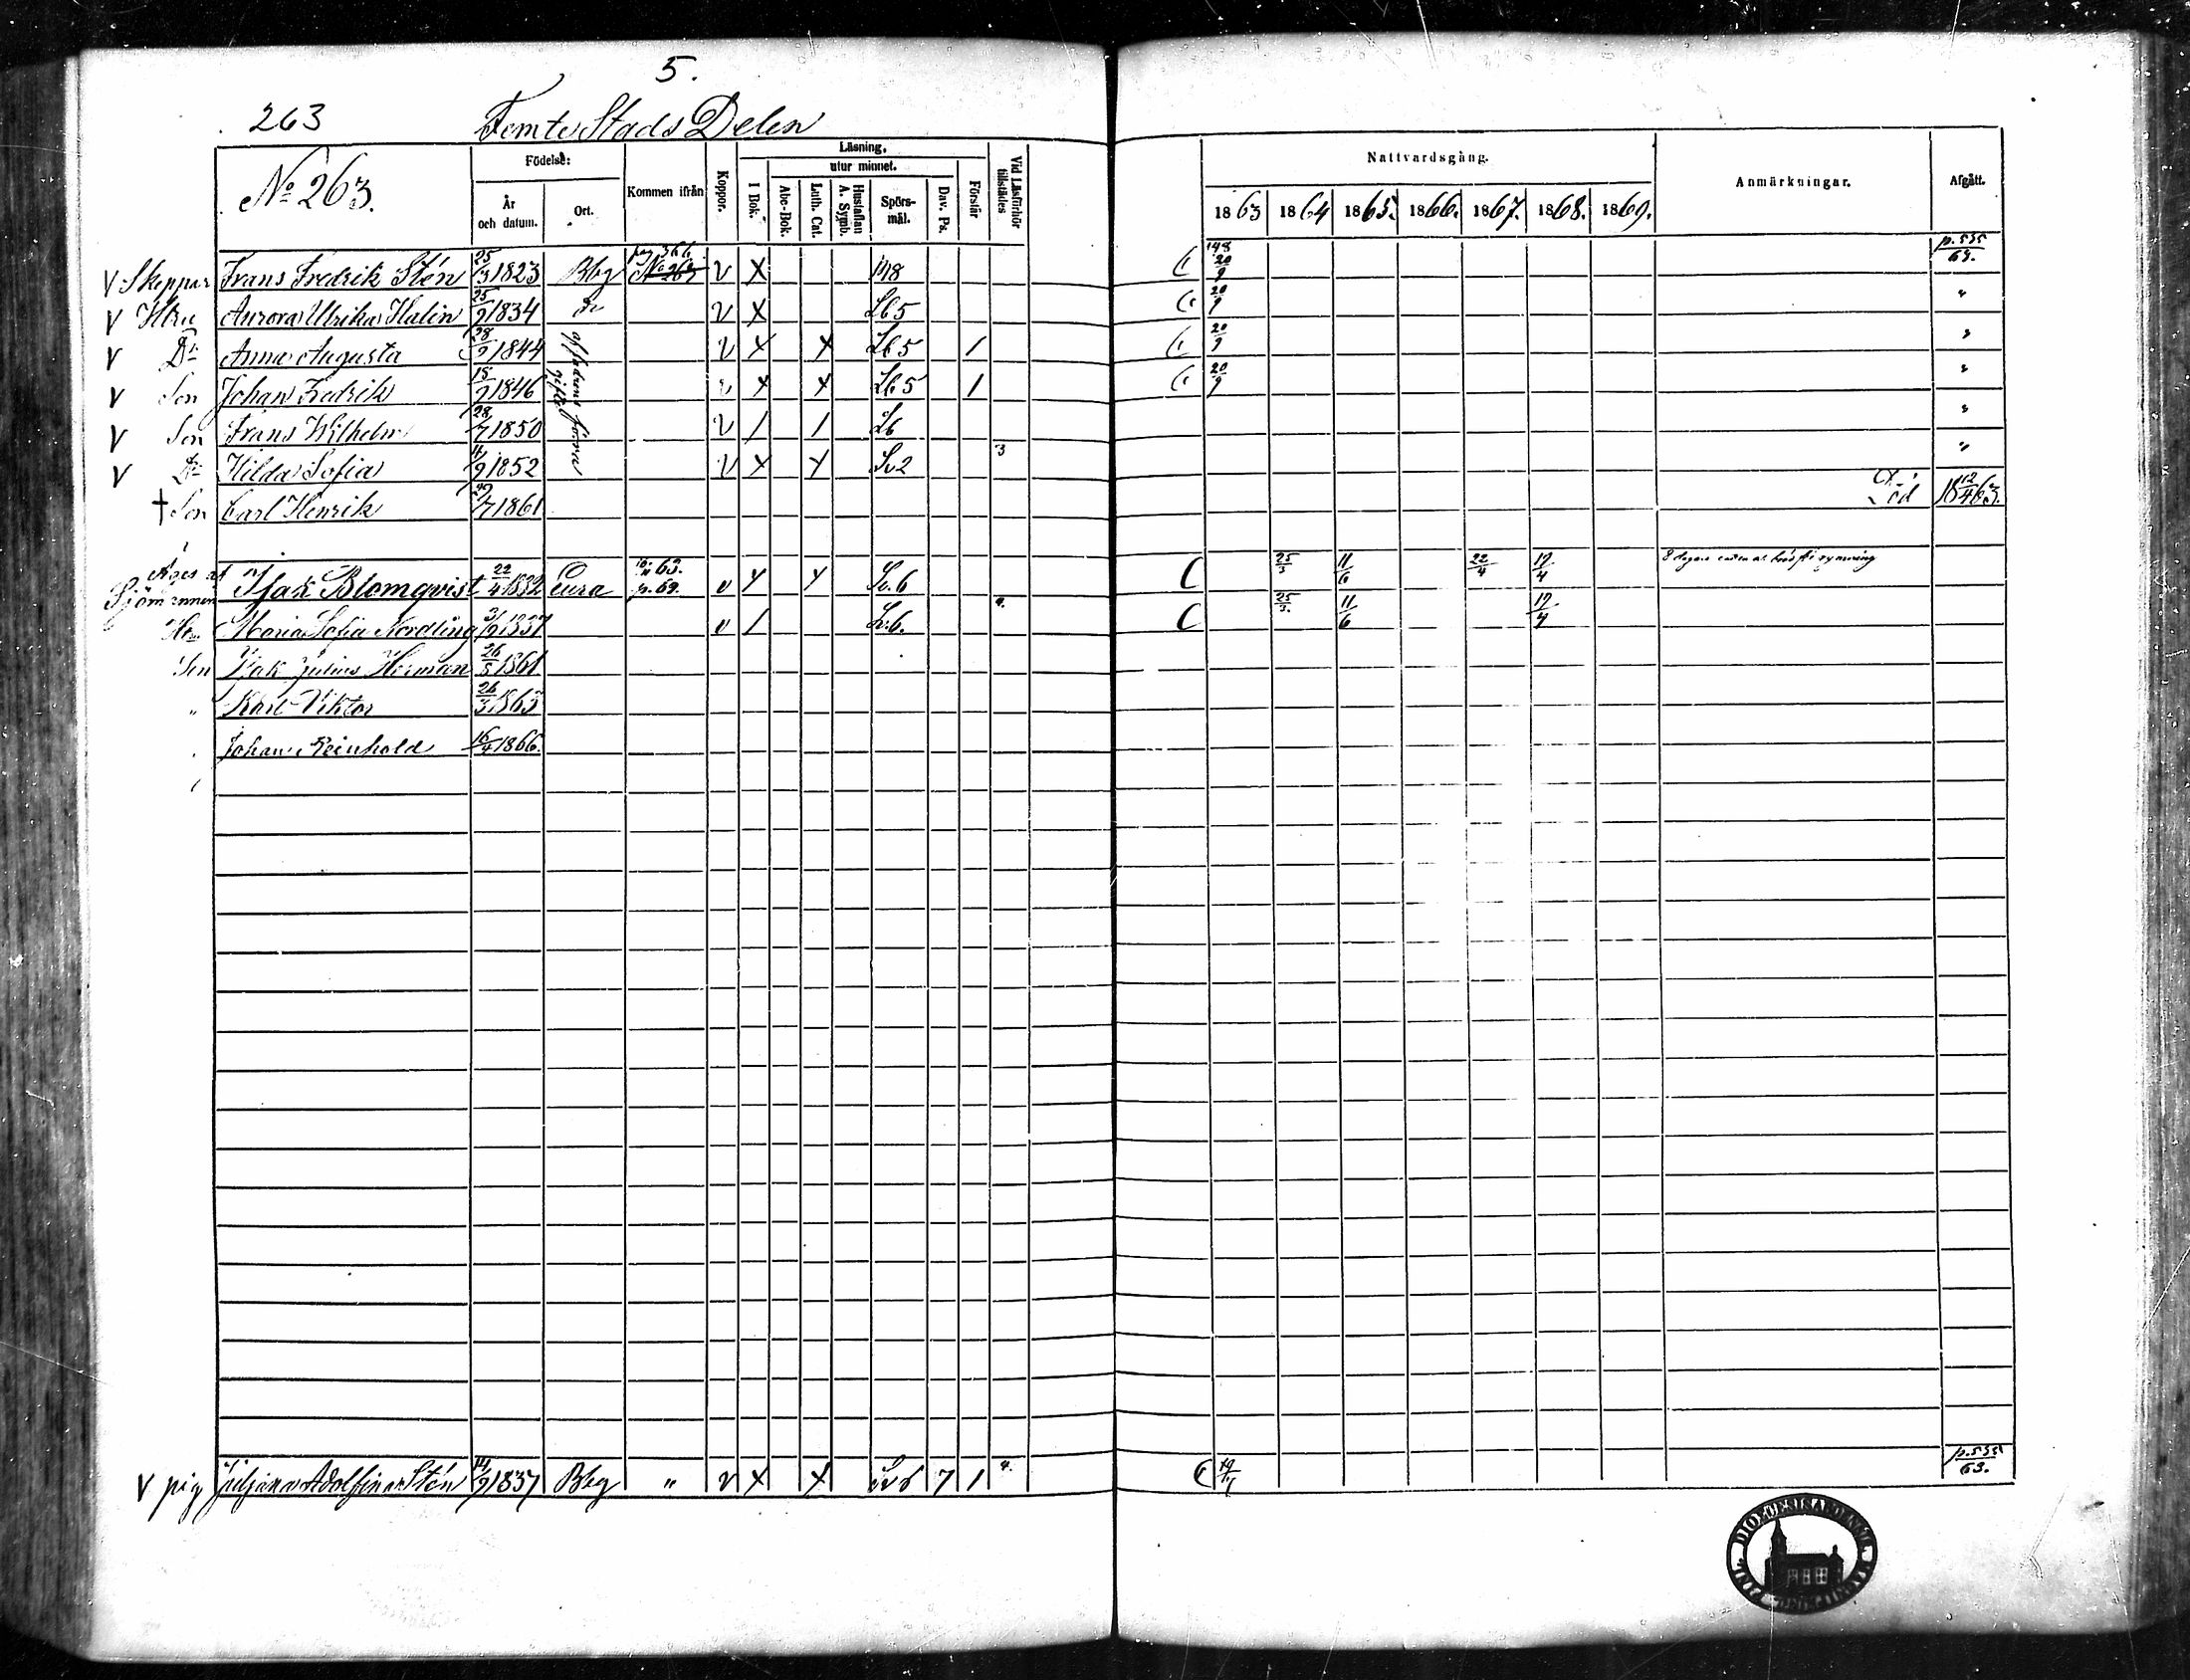 5.
263 Femte Stads Delen
No 263.
Födelse:
År och datum.
Ort.
Kommen ifrån
Koppor.
Läsning.
utur minnet.
I Bok.
Abc-Bok.
Luth. Cat.
Hustaflan A. Symb.
Spörs-mål.
Dav. Ps.
Förstår
Vid Läsförhör tillstädes
Nattvardsgång.
1863 1864 1865. 1866. 1867. 1868. 1869.
Anmärkningar.
Afgått.
V Skeppar Frans Fredrik Stén 25/3 1823 Bbg pag 366. No 263 v X 148 20/9 p. 535/63.
V Hstru Aurora Ulrika Halin 25/9 1834 do v X Lb 5 20/9 "
V Dr Anna Augusta 28/9 1844 v X X Lb 5 1 20/9 "
V Son Johan Fredrik 15/9 1846 v X X Lb 5 1 20/9 "
V Son Frans Wilhelm 28/7 1850 v / / "
V Dr Hilda Sofia 4/9 1852 v X X Sv 2 3 "
† Son Carl Henrik 29/7 1861 Död 18 12/4 63.
af förra
Äges af
Sjömannen Isak Blomqvist 22/4 1832 Eura 63. p. 69. v X X Sv. 6 C 25/3 11/6 22/4 19/4 8 dagars
Maria Sofia Nordling 3/9 1837 v / Sv. 6. C 25/3. 11/6 19/4
Son Isak Julius Herman 26/5 1861.
" Karl Viktor 26/3 1863
Johan Reinhold 16/4 1866.
V pig Juliana Adolfina Stén 14/9 1837 Bbg " v X X 7 1 4. p. 535/63.